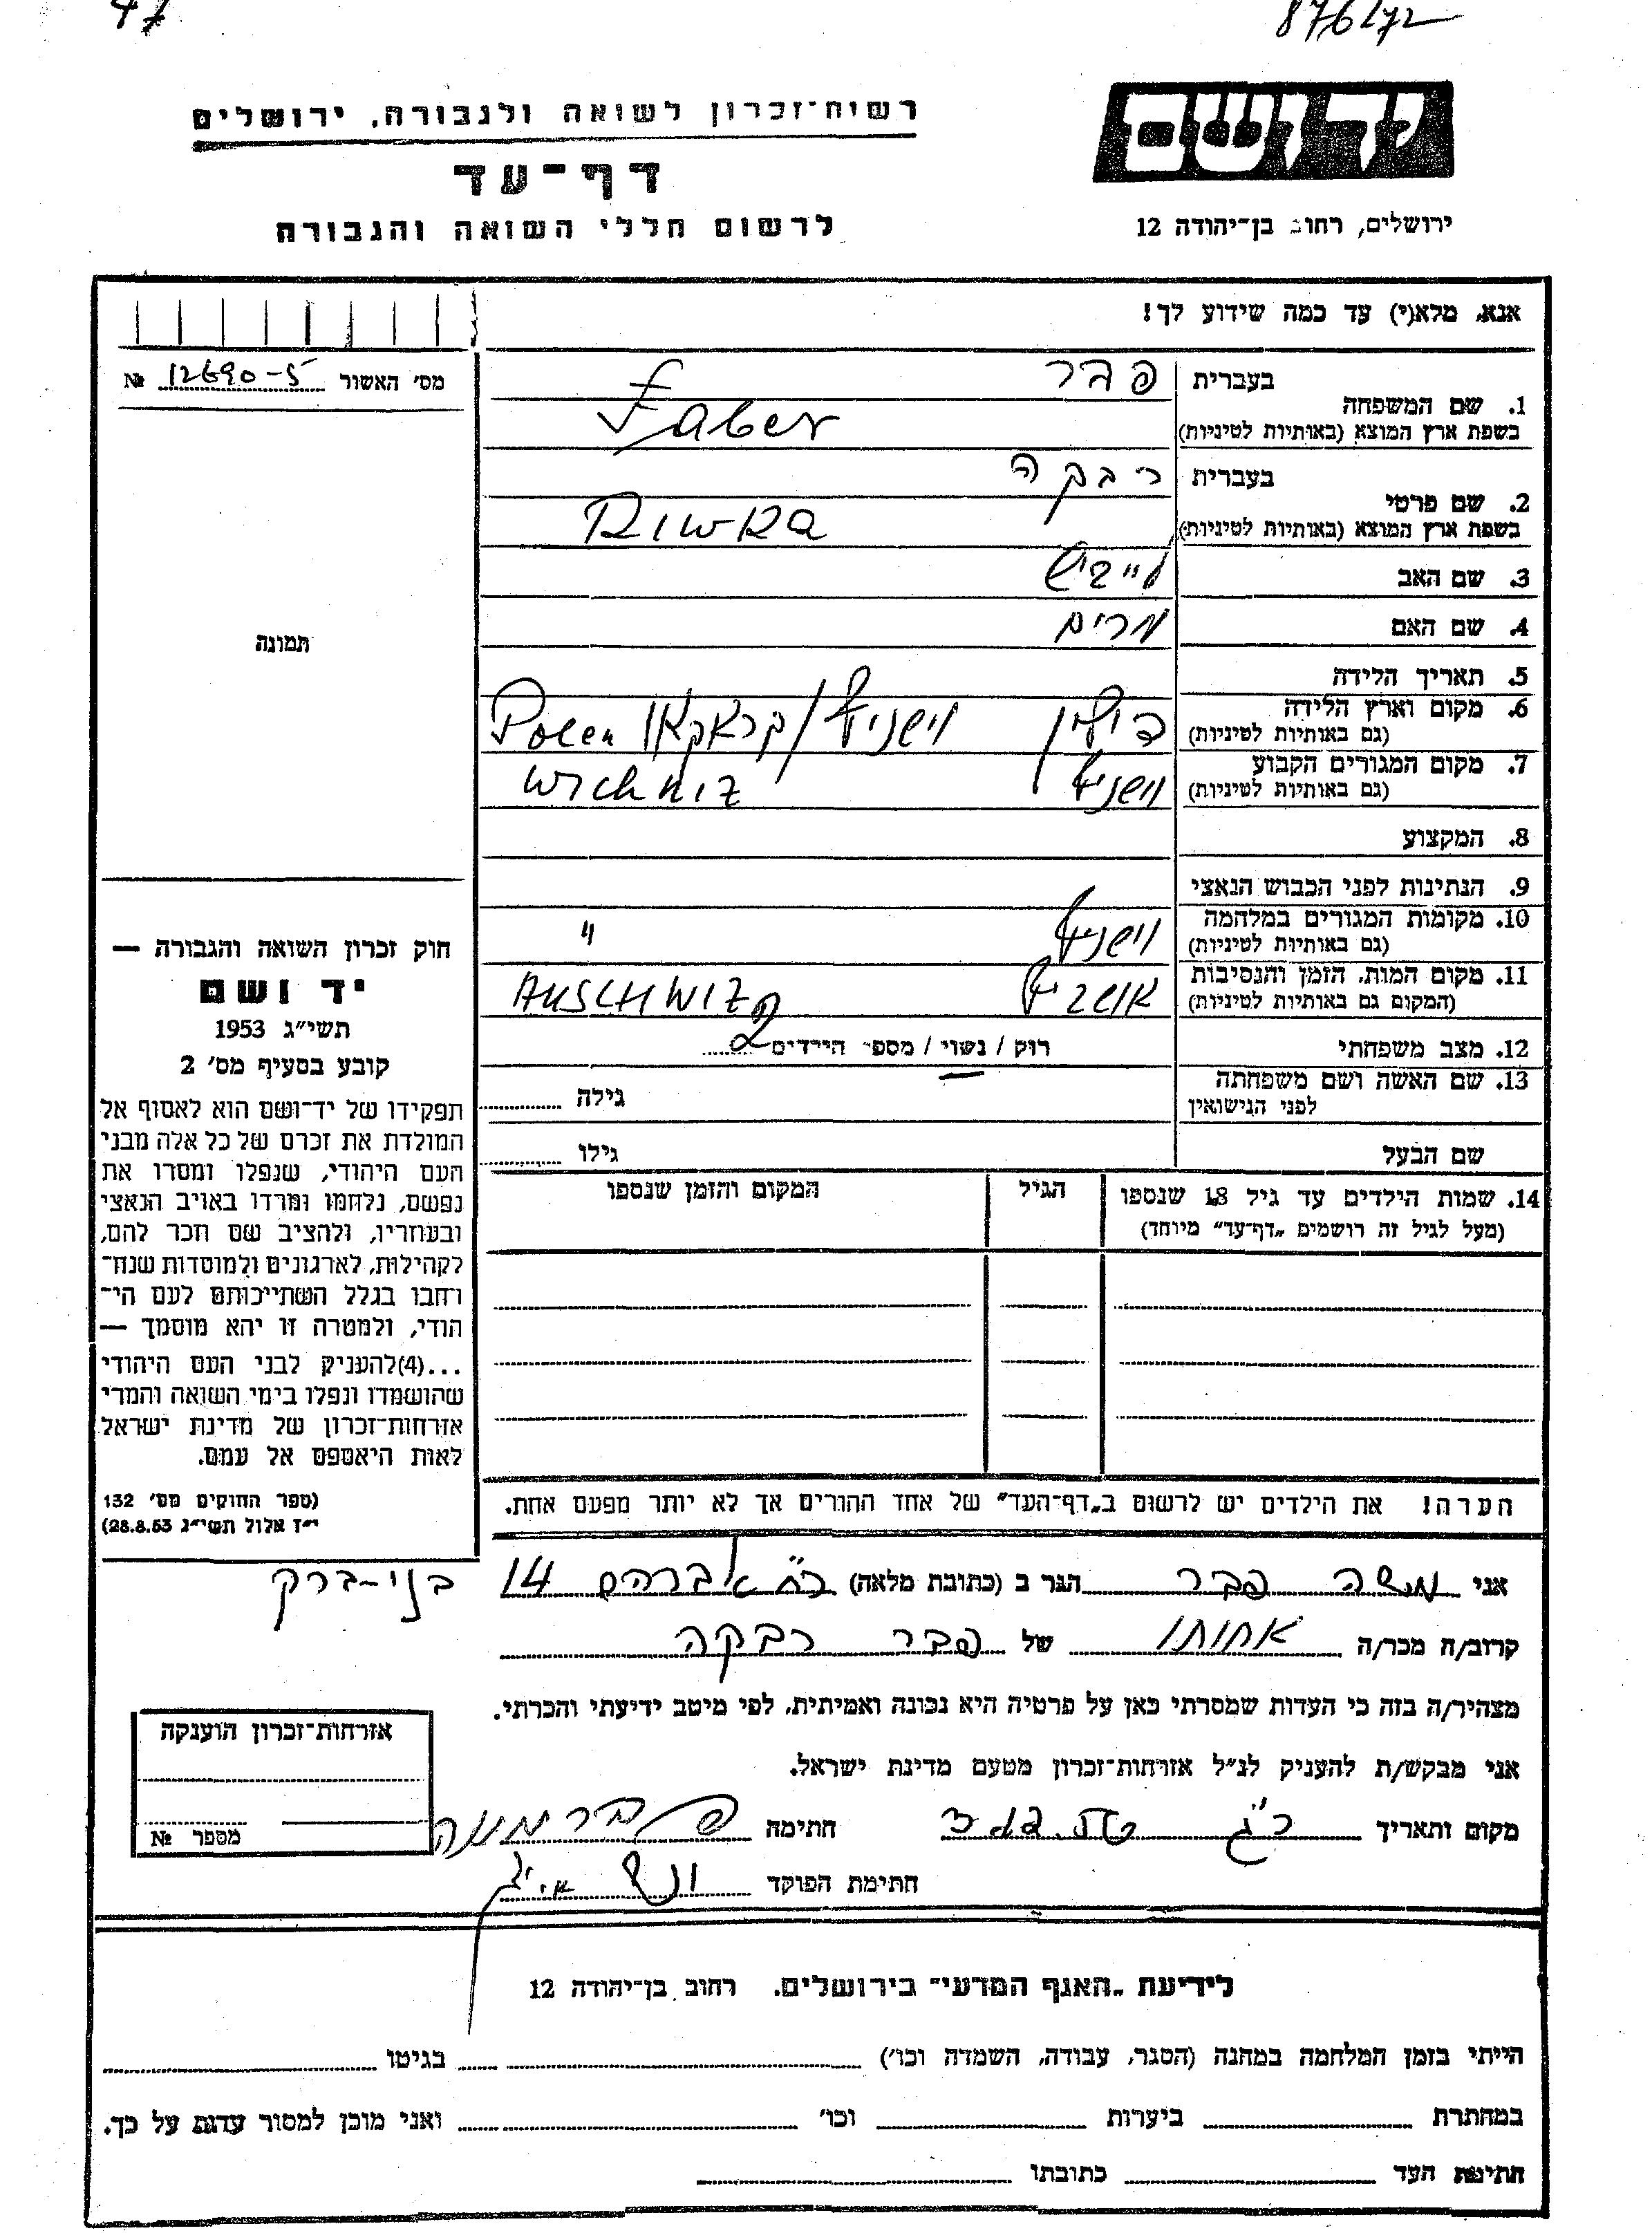 47
876/72
רשות־זכרון לשואה ולגבורה, ירושלים
יד ושם
דף־עד
לרשום חללי השואה והגבורה
ירושלים, רחוב בן־יהודה 12
אנא, מלא(י) עד כמה שידוע לך!
מס׳ האשור 12690-5 №
תמונה
1. שם המשפחה
בעברית פבר
בשפת ארץ המוצא (באותיות לטיניות) Faber
2. שם פרטי
בעברית רבקה
בשפת ארץ המוצא (באותיות לטיניות) Riwka
3. שם האב לייביש
4. שם האם מרים
5. תאריך הלידה
6. מקום וארץ הלידה
(גם באותיות לטיניות) פולין ווישניץ/קראקאו Polen
7. מקום המגורים הקבוע
(גם באותיות לטיניות) ווישניץ Wichniz
8. המקצוע
9. הנתינות לפני הכבוש הנאצי
10. מקומות המגורים במלחמה
(גם באותיות לטיניות) ווישניץ "
11. מקום המות, הזמן והנסיבות
(המקום גם באותיות לטיניות) אושביץ AUSCHWIZ
12. מצב משפחתי רוק / נשוי / מספר הילדים 2
13. שם האשה ושם משפחתה
לפני הנישואין גילה
שם הבעל גילו
14. שמות הילדים עד גיל 18 שנספו
(מעל לגיל זה רושמים „דף־עד" מיוחד)
הגיל
המקום והזמן שנספו
הערה! את הילדים יש לרשום ב„דף־העד" של אחד ההורים אך לא יותר מפעם אחת.
חוק זכרון השואה והגבורה —
יד ושם
תשי״ג 1953
קובע בסעיף מס׳ 2
תפקידו של יד־ושם הוא לאסוף אל
המולדת את זכרם של כל אלה מבני
העם היהודי, שנפלו ומסרו את
נפשם, נלחמו ומרדו באויב הנאצי
ובעוזריו, ולהציב שם וזכר להם,
לקהילות, לארגונים ולמוסדות שנח־
רחבו בגלל השתייכותם לעם הי־
הודי, ולמטרה זו יהא מוסמך —
...(4)להעניק לבני העם היהודי
שהושמדו ונפלו בימי השואה והמרי
אזרחות־זכרון של מדינת ישראל
לאות היאספם אל עמם.
(ספר החוקים מס׳ 132
י״ז אלול תשי״ג 28.8.53)
אני משה פבר הגר ב (כתובת מלאה) אברהם 14 בני-ברק
קרוב/ה מכר/ה אחותו של פבר רבקה
מצהיר/ה בזה כי העדות שמסרתי כאן על פרטיה היא נכונה ואמיתית, לפי מיטב ידיעתי והכרתי.
אני מבקש/ת להעניק לנ״ל אזרחות־זכרון מטעם מדינת ישראל.
מקום ותאריך כ״ג חתימה פבר משה
חתימת הפוקד
אזרחות־זכרון הוענקה
מספר №
לידיעת „האגף המדעי" בירושלים. רחוב בן־יהודה 12
הייתי בזמן המלחמה במחנה (הסגר, עבודה, השמדה וכו׳) בגיטו
במחתרת ביערות וכו׳ ואני מוכן למסור עדות על כך.
חתימת העד כתובתו